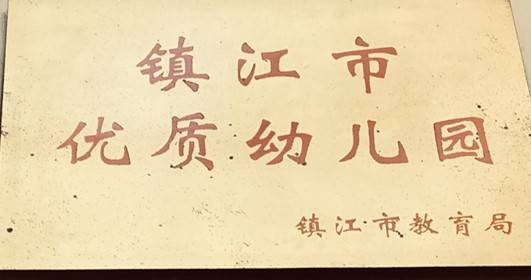 镇江市
优质幼儿园
镇江市教育局